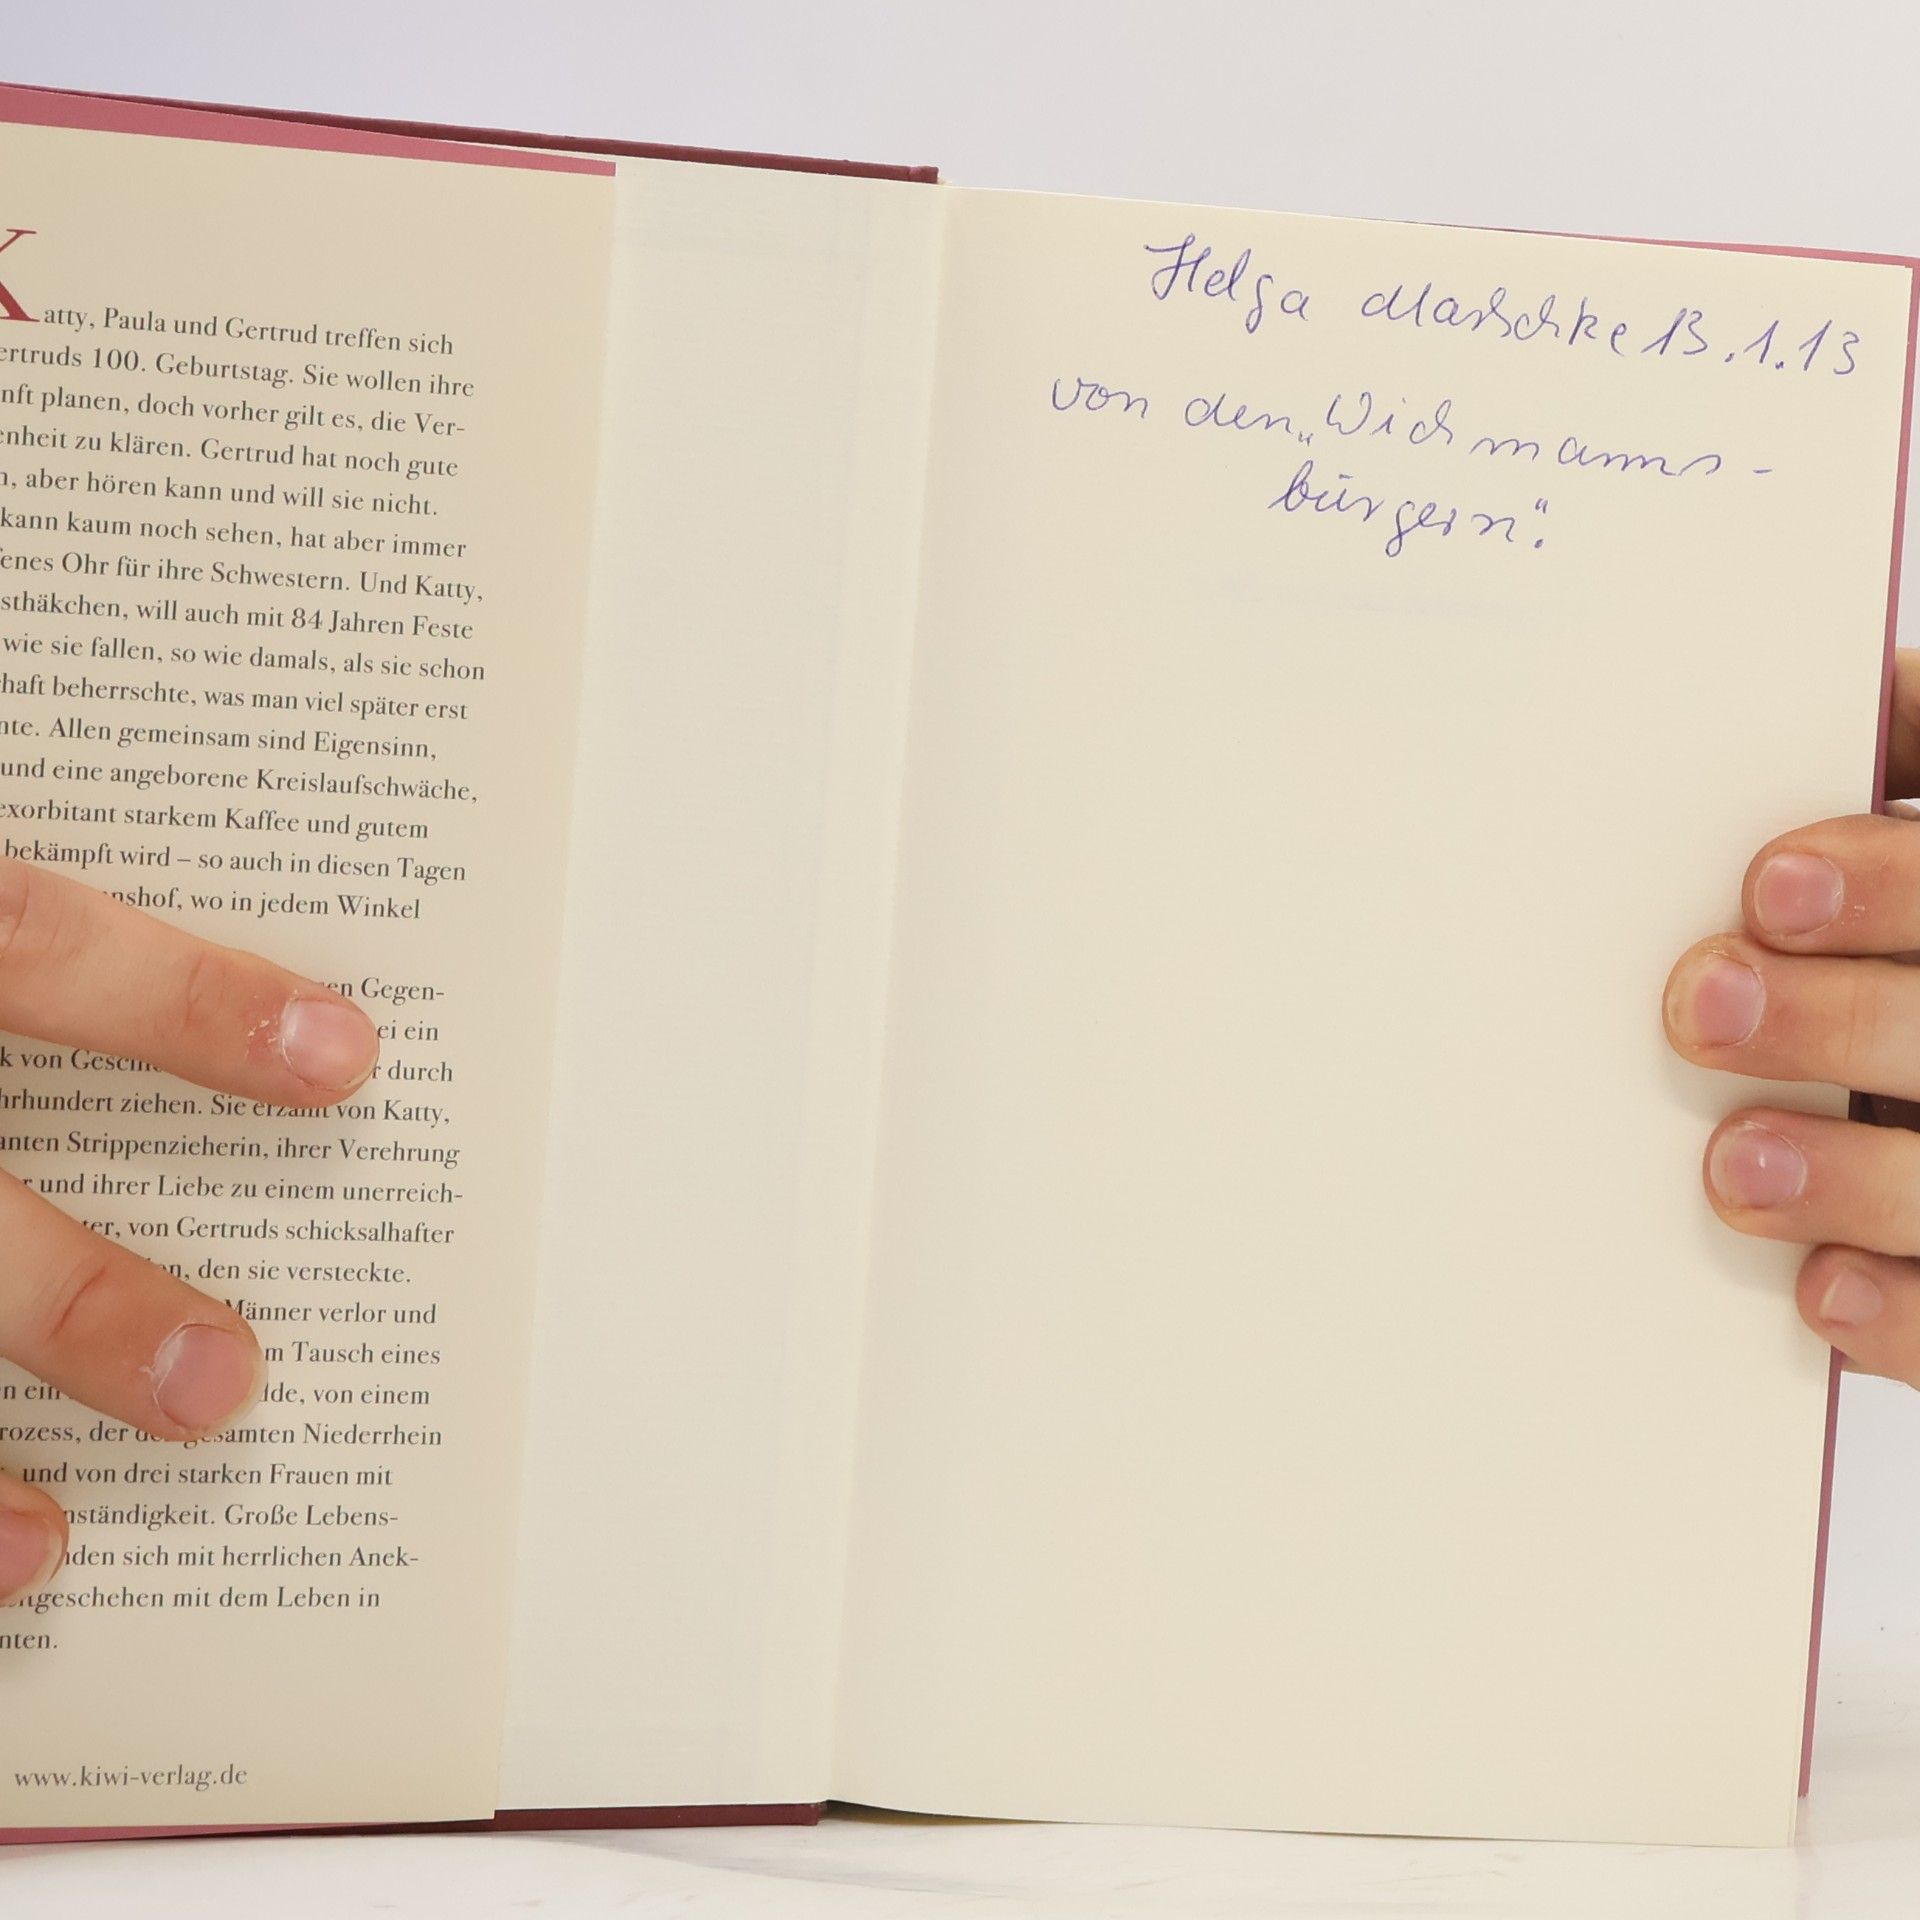 Katty, Paula und Gertrud treffen sich
ertruds 100. Geburtstag. Sie wollen ihre
nft planen, doch vorher gilt es, die Ver-
enheit zu klären. Gertrud hat noch gute
n, aber hören kann und will sie nicht.
kann kaum noch sehen, hat aber immer
fenes Ohr für ihre Schwestern. Und Katty,
sthäkchen, will auch mit 84 Jahren Feste
wie sie fallen, so wie damals, als sie schon
haft beherrschte, was man viel später erst
nte. Allen gemeinsam sind Eigensinn,
und eine angeborene Kreislaufschwäche,
exorbitant starkem Kaffee und gutem
bekämpft wird – so auch in diesen Tagen
nshof, wo in jedem Winkel
en Gegen-
ei ein
k von durch
hrhundert ziehen. Sie erzählt von Katty,
anten Strippenzieherin, ihrer Verehrung
r und ihrer Liebe zu einem unerreich-
ter, von Gertruds schicksalhafter
n, den sie versteckte.
Männer verlor und
m Tausch eines
n ein lde, von einem
rozess, der den gesamten Niederrhein
und von drei starken Frauen mit
nständigkeit. Große Lebens-
nden sich mit herrlichen Anek-
itgeschehen mit dem Leben in
nten.
www.kiwi-verlag.de
Helga Marschke 13.1.13
von den „Wichmanns-
bürgern".